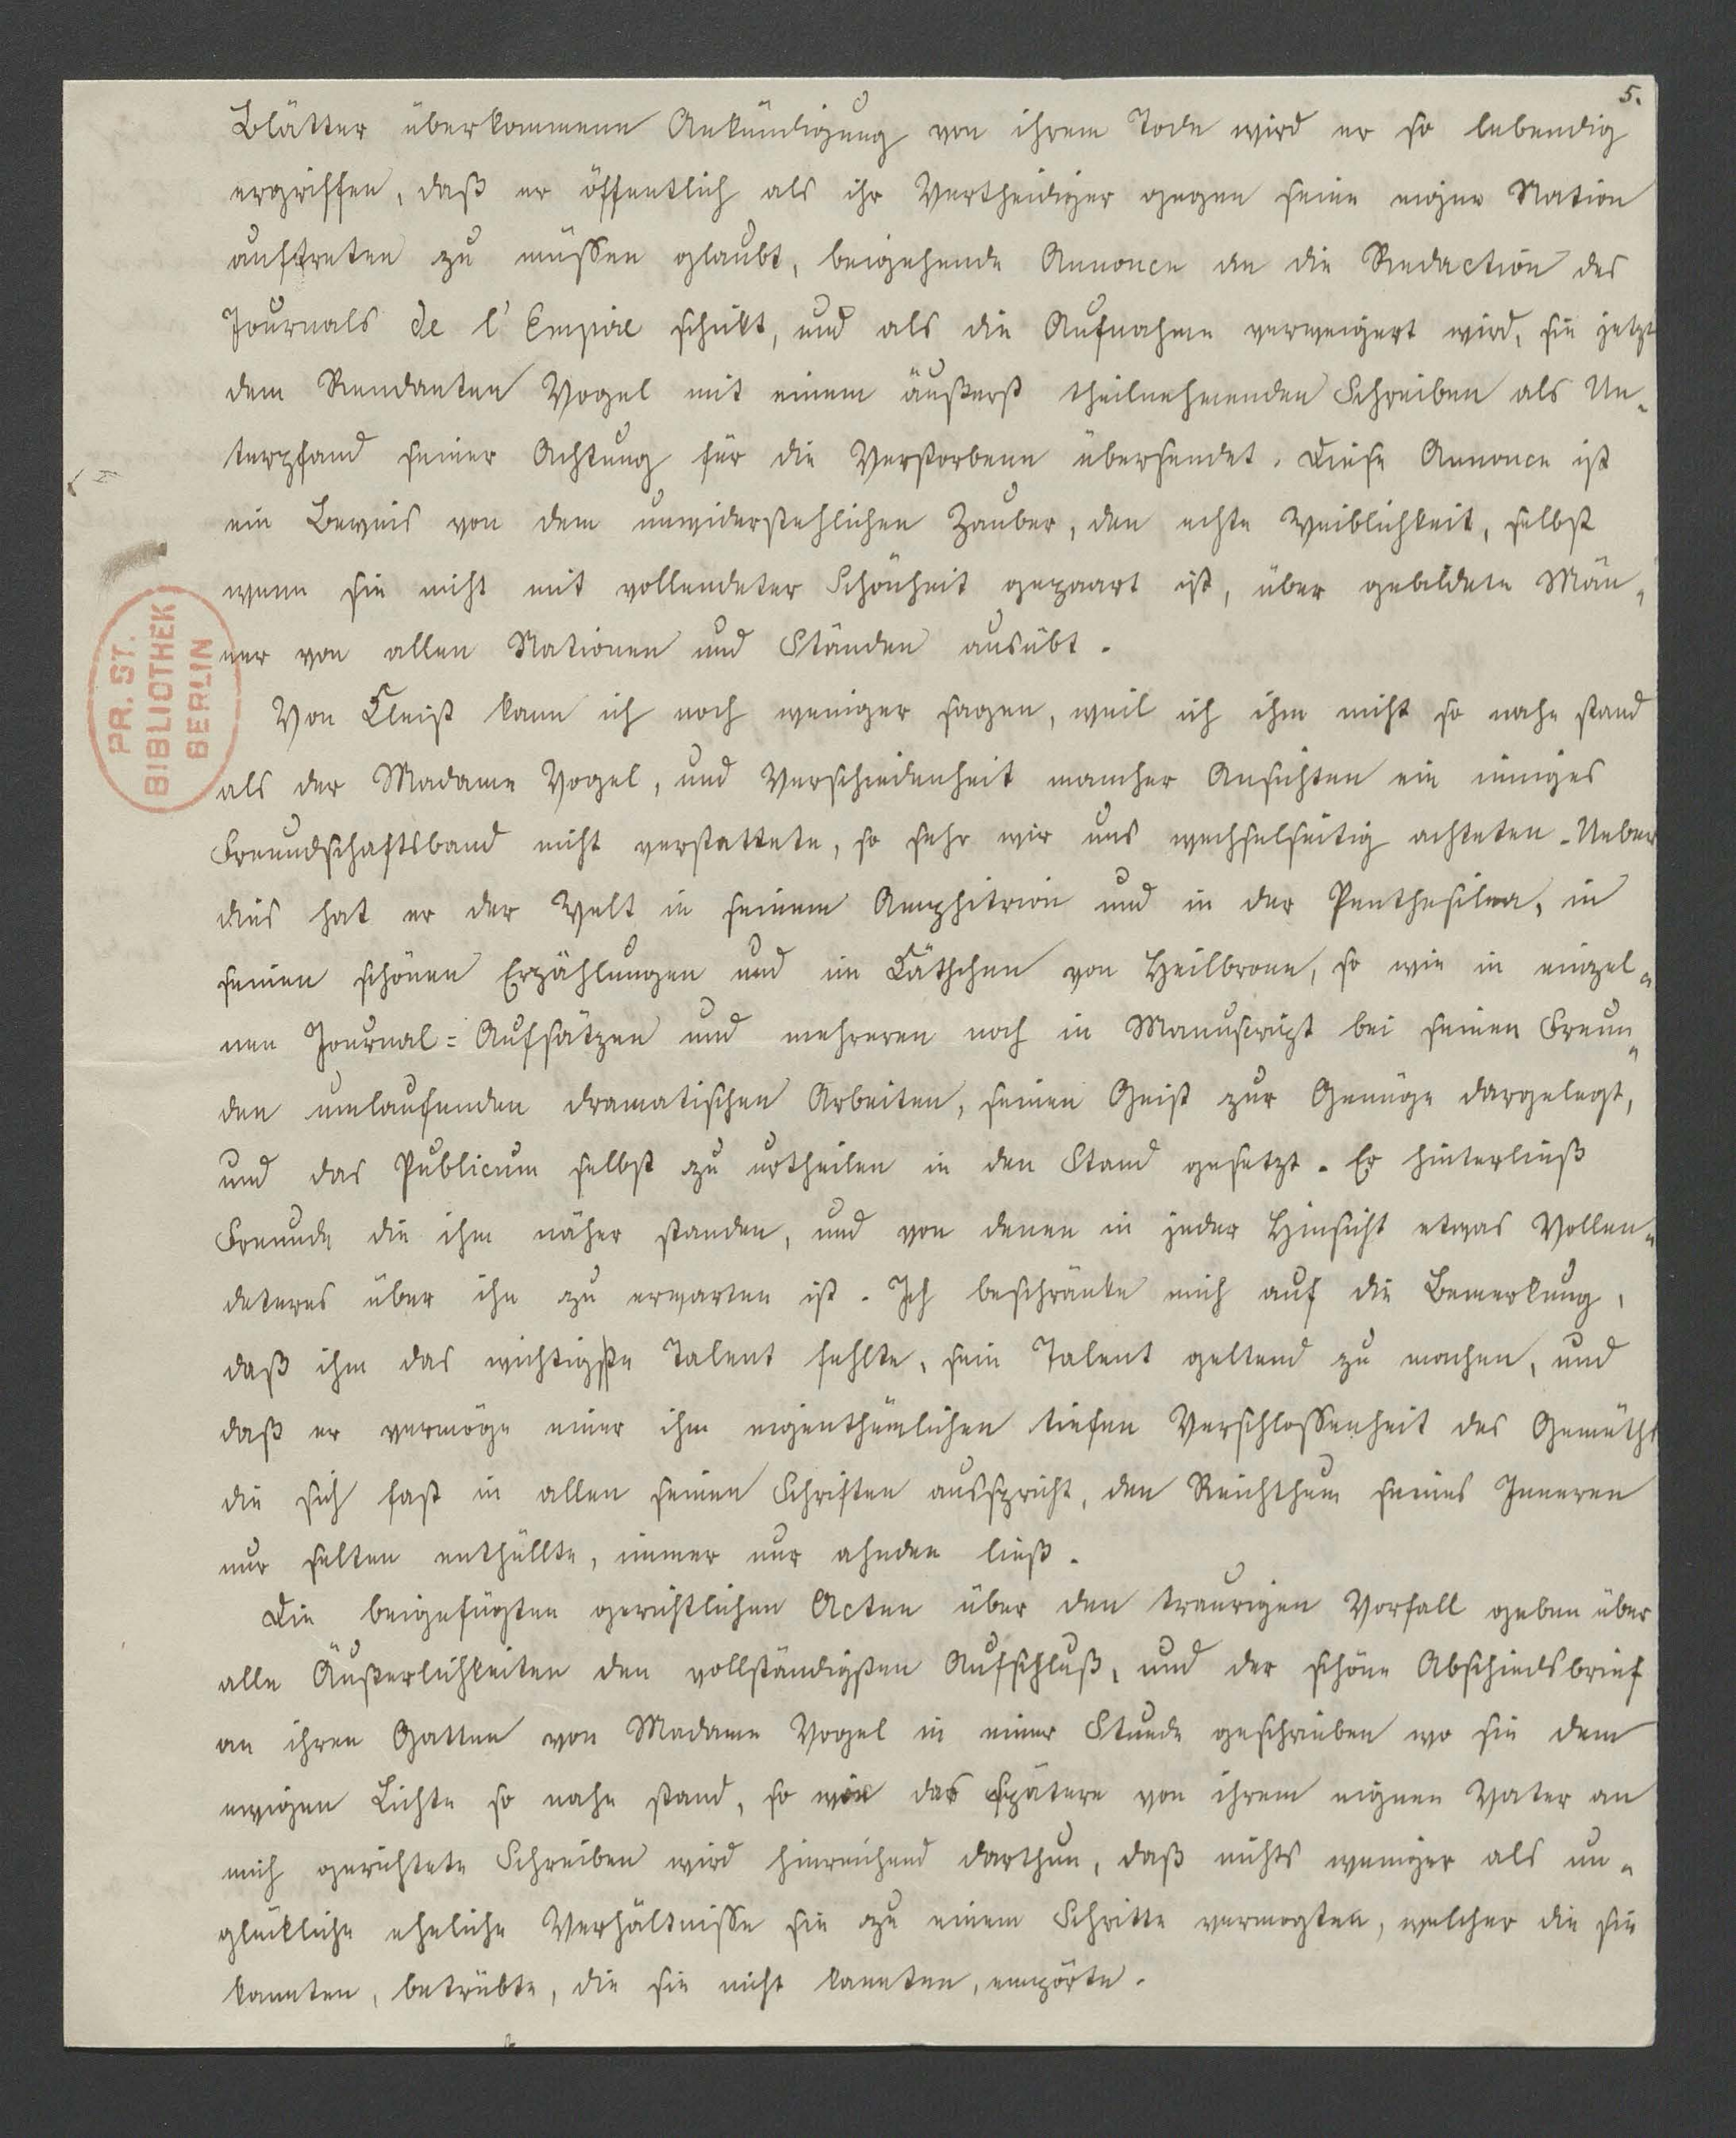 5.
Blätter überkommene Ankündigung von ihrem Tode wird er so lebendig
ergriffen, daß er öffentlich als ihr Vertheidiger gegen seine eigne Nation
auftreten zu müssen glaubt, beigehende Annonce an die Redaction des
Journals de l'Empire schikt, und als die Aufnahme verweigert wird, sie jetzt
dem Rendanten Vogel mit einem äußerst theilnehmenden Schreiben als Un-
terpfand seiner Achtung für die Verstorbene übersendet. Diese Annonce ist
ein Beweis von dem unwiderstehlichen Zauber, den echte Weiblichkeit, selbst
wenn sie nicht mit vollendeter Schönheit gepaart ist, über gebildete Män-
ner von allen Nationen und Ständen ausübt.
Von Kleist kann ich noch weniger sagen, weil ich ihm nicht so nahe stand
als der Madame Vogel, und Verschiedenheit mancher Ansichten ein inniges
Freundschaftsband nicht verstattete, so sehr wir uns wechselseitig achteten. Ueber
dies hat er der Welt in seinem Amphitrion und in der Penthesilea, in
seinen schönen Erzählungen und im Käthchen von Heilbronn, so wie in einzel-
nen Journal=Aufsätzen und mehreren noch in Manuscript bei seinen Freun-
den umlaufenden dramatischen Arbeiten, seinen Geist zur Genüge dargelegt,
und das Publicum selbst zu urtheilen in den Stand gesetzt. Er hinterließ
Freunde die ihm näher standen, und von denen in jeder Hinsicht etwas Vollen-
deteres über ihn zu erwarten ist. Ich beschränke mich auf die Bemerkung,
daß ihm das wichtigste Talent fehlte, sein Talent geltend zu machen, und
daß er vermöge einer ihm eigenthümlichen tiefen Verschlossenheit des Gemüths
die sich fast in allen seinen Schriften ausspricht, den Reichthum seines Inneren
nur selten enthüllte, immer nur ahnden ließ.
Die beigefügten gerichtlichen Acten über den traurigen Vorfall geben über
alle Äußerlichkeiten den vollständigsten Aufschluß, und der schöne Abschiedsbrief
an ihren Gatten von Madame Vogel in einer Stunde geschrieben wo sie dem
ewigen Lichte so nahe stand, so wie das spätere von ihrem eignen Vater an
mich gerichtete Schreiben wird hinreichend darthun, daß nichts weniger als un-
glückliche eheliche Verhältnisse sie zu einem Schritte vermogten, welcher die sie
kannten, betrübte, die sie nicht kannten, empörte.
PR. ST.
BIBLIOTHEK
BERLIN